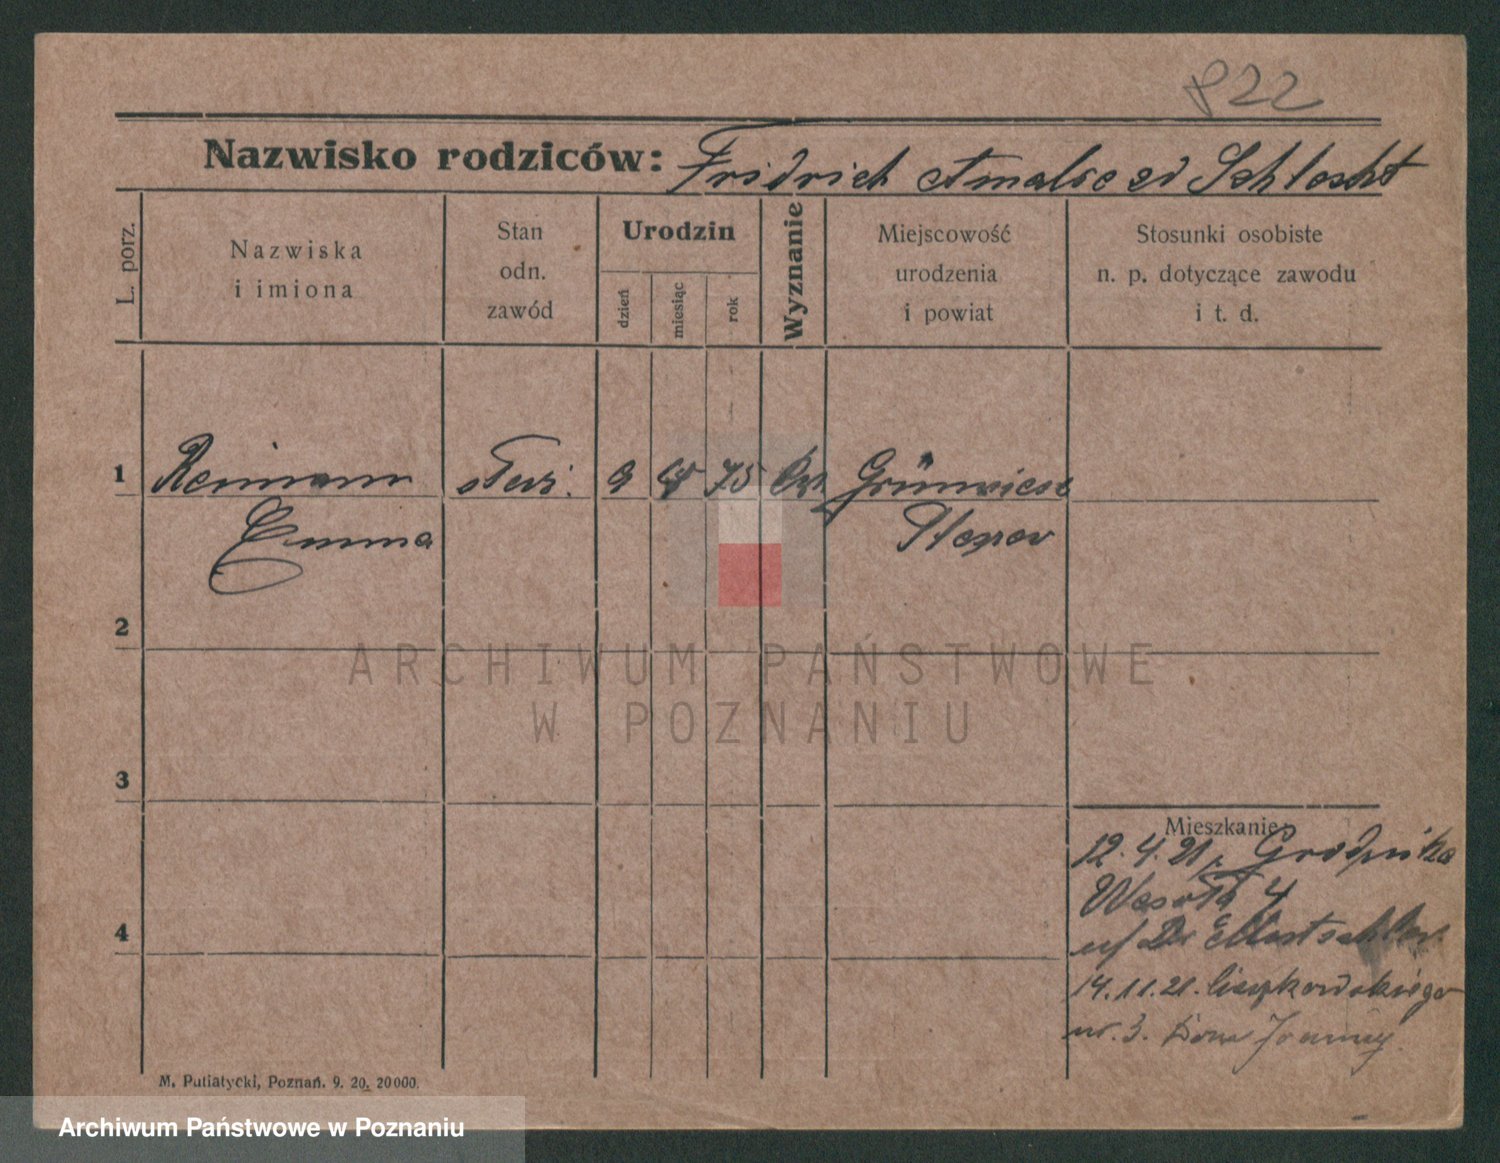 822
Nazwisko rodziców: Fridrich Amalie ed Schlecht
L. porz.
Nazwiska
i imiona
Stan
odn.
zawód
Urodzin
dzień
miesiąc
rok
Wyznanie
Miejscowość
urodzenia
i powiat
Stosunki osobiste
n. p. dotyczące zawodu
i t. d.
1 Reimann 9 75 Grünwiese
Emma
2
3
4
ARCHIWUM PAŃSTWOWE
W POZNANIU
Mieszkanie:
12.4.21 z Grodziska
Wesoła 4
14.11.21.
nr. 3.
M. Putiatycki, Poznań. 9. 20. 20000.
Archiwum Państwowe w Poznaniu